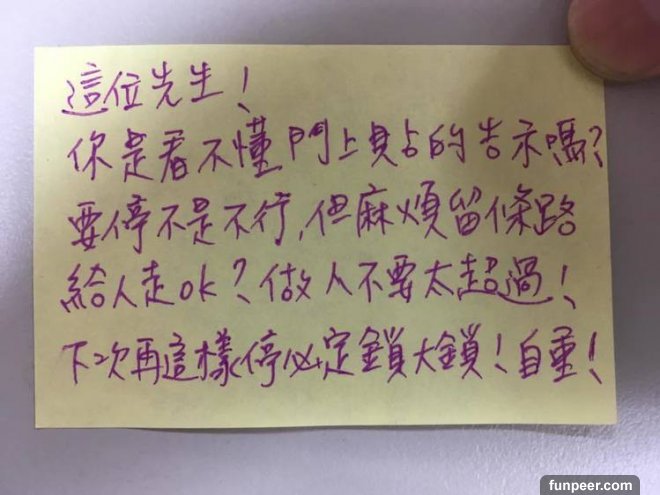 這位先生!
你是看不懂門上貼的告示嗎?
要停不是不行,但麻煩留條路
給人走ok?做人不要太超過!
下次再這樣停必定鎖大鎖!自重!
funpeer.com